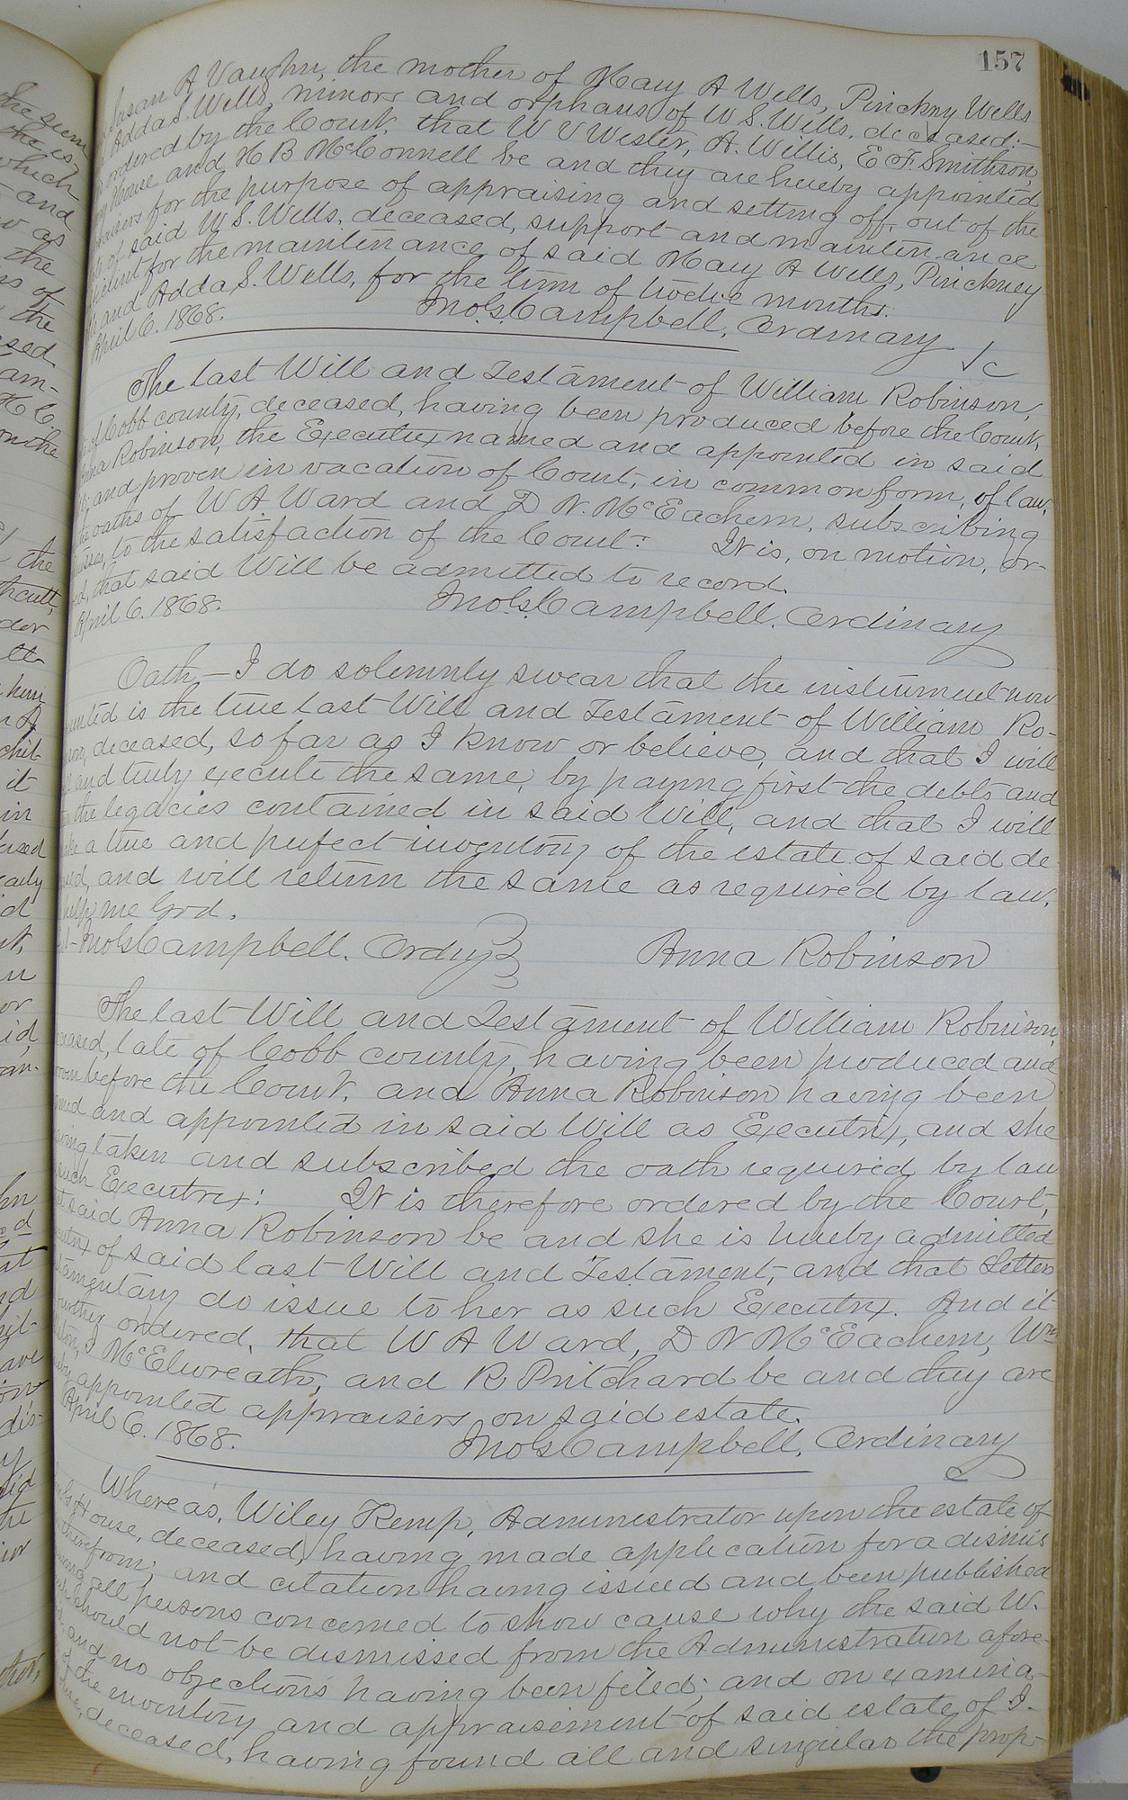 157
Susan A Vaughn, the mother of Mary A Wells, Pinckny Wells
Adda S. Wells, minors and orphans of W S. Wells, deceased:—
ordered by the Court, that W V Wester, A. Willis, E F. Smithson,
house and H B McConnell be and they are hereby appointed
for the purpose of appraising and setting off, out of the
of said W S. Wells, deceased, support and maintenance
for the maintenance of said Mary A Wells, Pinckney
and Adda S. Wells, for the term of twelve months.
April 6. 1868. Jno. S. Campbell, Ordinary
The last Will and Testament of William Robinson,
of Cobb county, deceased, having been produced before the Court,
Anna Robinson, the Executrix named and appointed in said
and proven in vacation of Court, in common form, of law,
the oaths of W A. Ward and D N. McEachern, subscribing
to the satisfaction of the Court: It is, on motion, or-
that said Will be admitted to record.
April 6. 1868. Jno. S. Campbell. Ordinary
Oath,— I do solemnly swear that the instrument now
is the true last Will and Testament of William Ro-
deceased, so far as I know or believe, and that I will
and truly execute the same, by paying first the debts and
the legacies contained in said Will, and that I will
a true and perfect inventory of the estate of said de
and will return the same as required by law.
help me God.
Jno S Campbell. Ordy Anna Robinson
The last Will and Testament of William Robinson,
late of Cobb county, having been produced and
before the Court, and Anna Robinson having been
and appointed in said Will as Executrix, and she
having taken and subscribed the oath required by law
such Executrix: It is therefore ordered by the Court,
said Anna Robinson be and she is hereby admitted
of said last Will and Testament, and that Letters
do issue to her as such Executrix. And it
further ordered, that W A Ward, D N McEachern, Wm
McElwreath, and R Pritchard be and they are
appointed appraisers on said estate.
April 6. 1868. Jno S Campbell, Ordinary
Whereas, Wiley Kemp, Administrator upon the estate of
House, deceased, having made application for a dismis
therefrom; and citation having issued and been published
all persons concerned to show cause why the said W.
should not be dismissed from the Administration afore-
and no objections having been filed; and on examina-
the inventory and appraisement of said estate of I.
deceased, having found all and singular the prop-